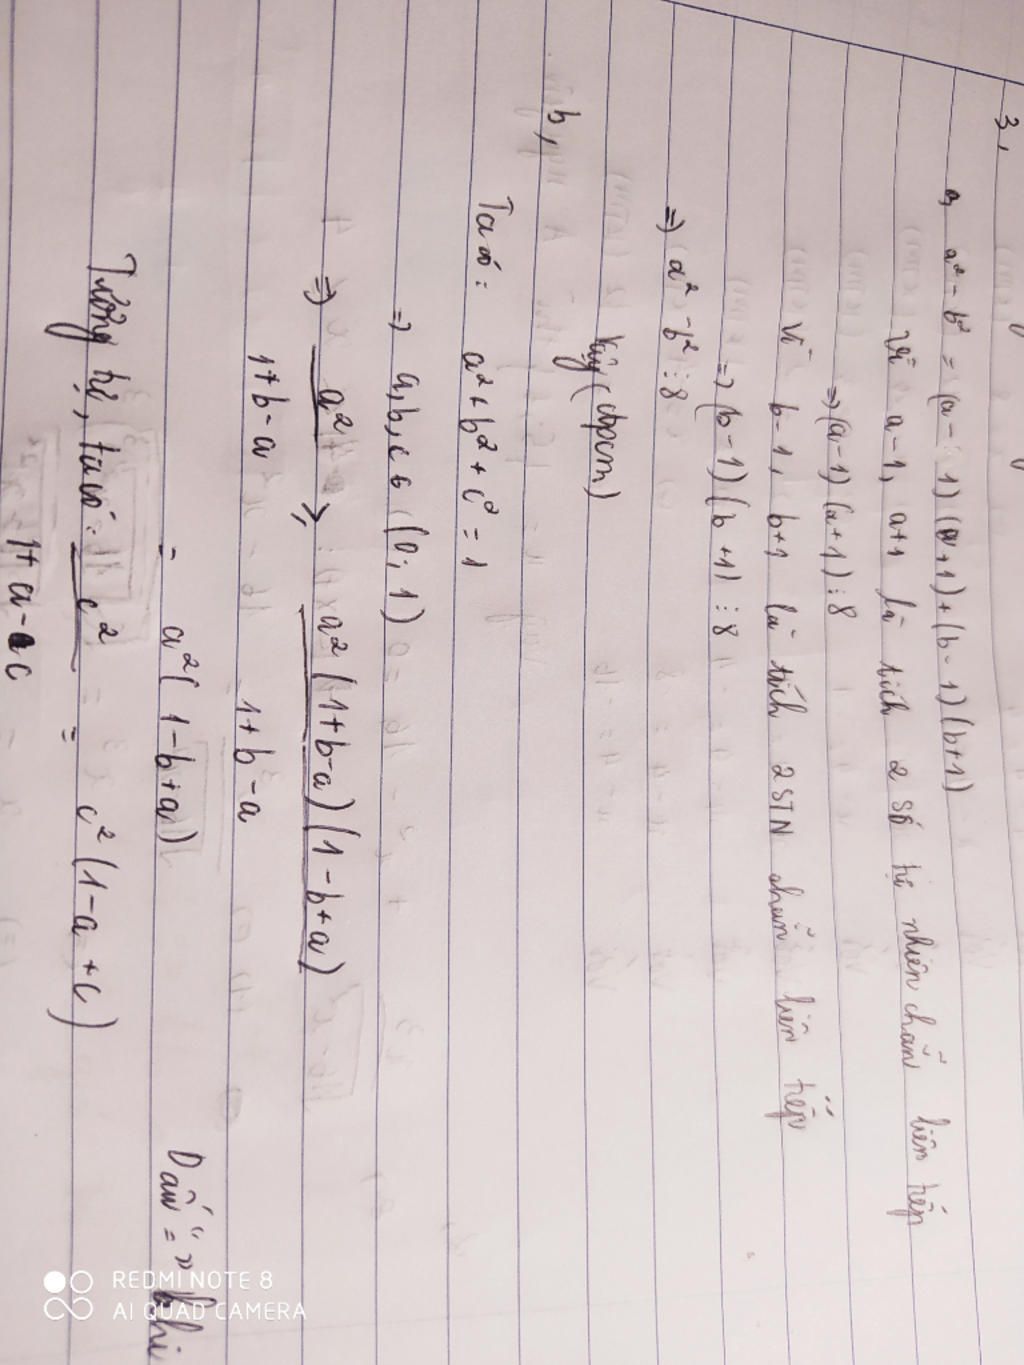 3,
a, a² - b² = (a - 1)(a+1)+(b-1)(b+1)
Vì a-1, a+1 là tích 2 số tự nhiên chẵn liên tiếp
=> (a-1)(a+1)⋮8
Vì b-1, b+1 là tích 2 STN chẵn liên tiếp
=> (b-1)(b+1)⋮8
=> a² - b²⋮8
Vậy (đpcm)
b,
Ta có: a² + b² + c² = 1
=> a, b, c ∈ (0; 1)
=> a²/(1+b-a) ≥ a²(1+b-a)(1-b+a)/(1+b-a)
= a²(1-b+a) Dấu "=" khi
Tương tự, ta có: c²/(1+a-c) = c²(1-a+c)